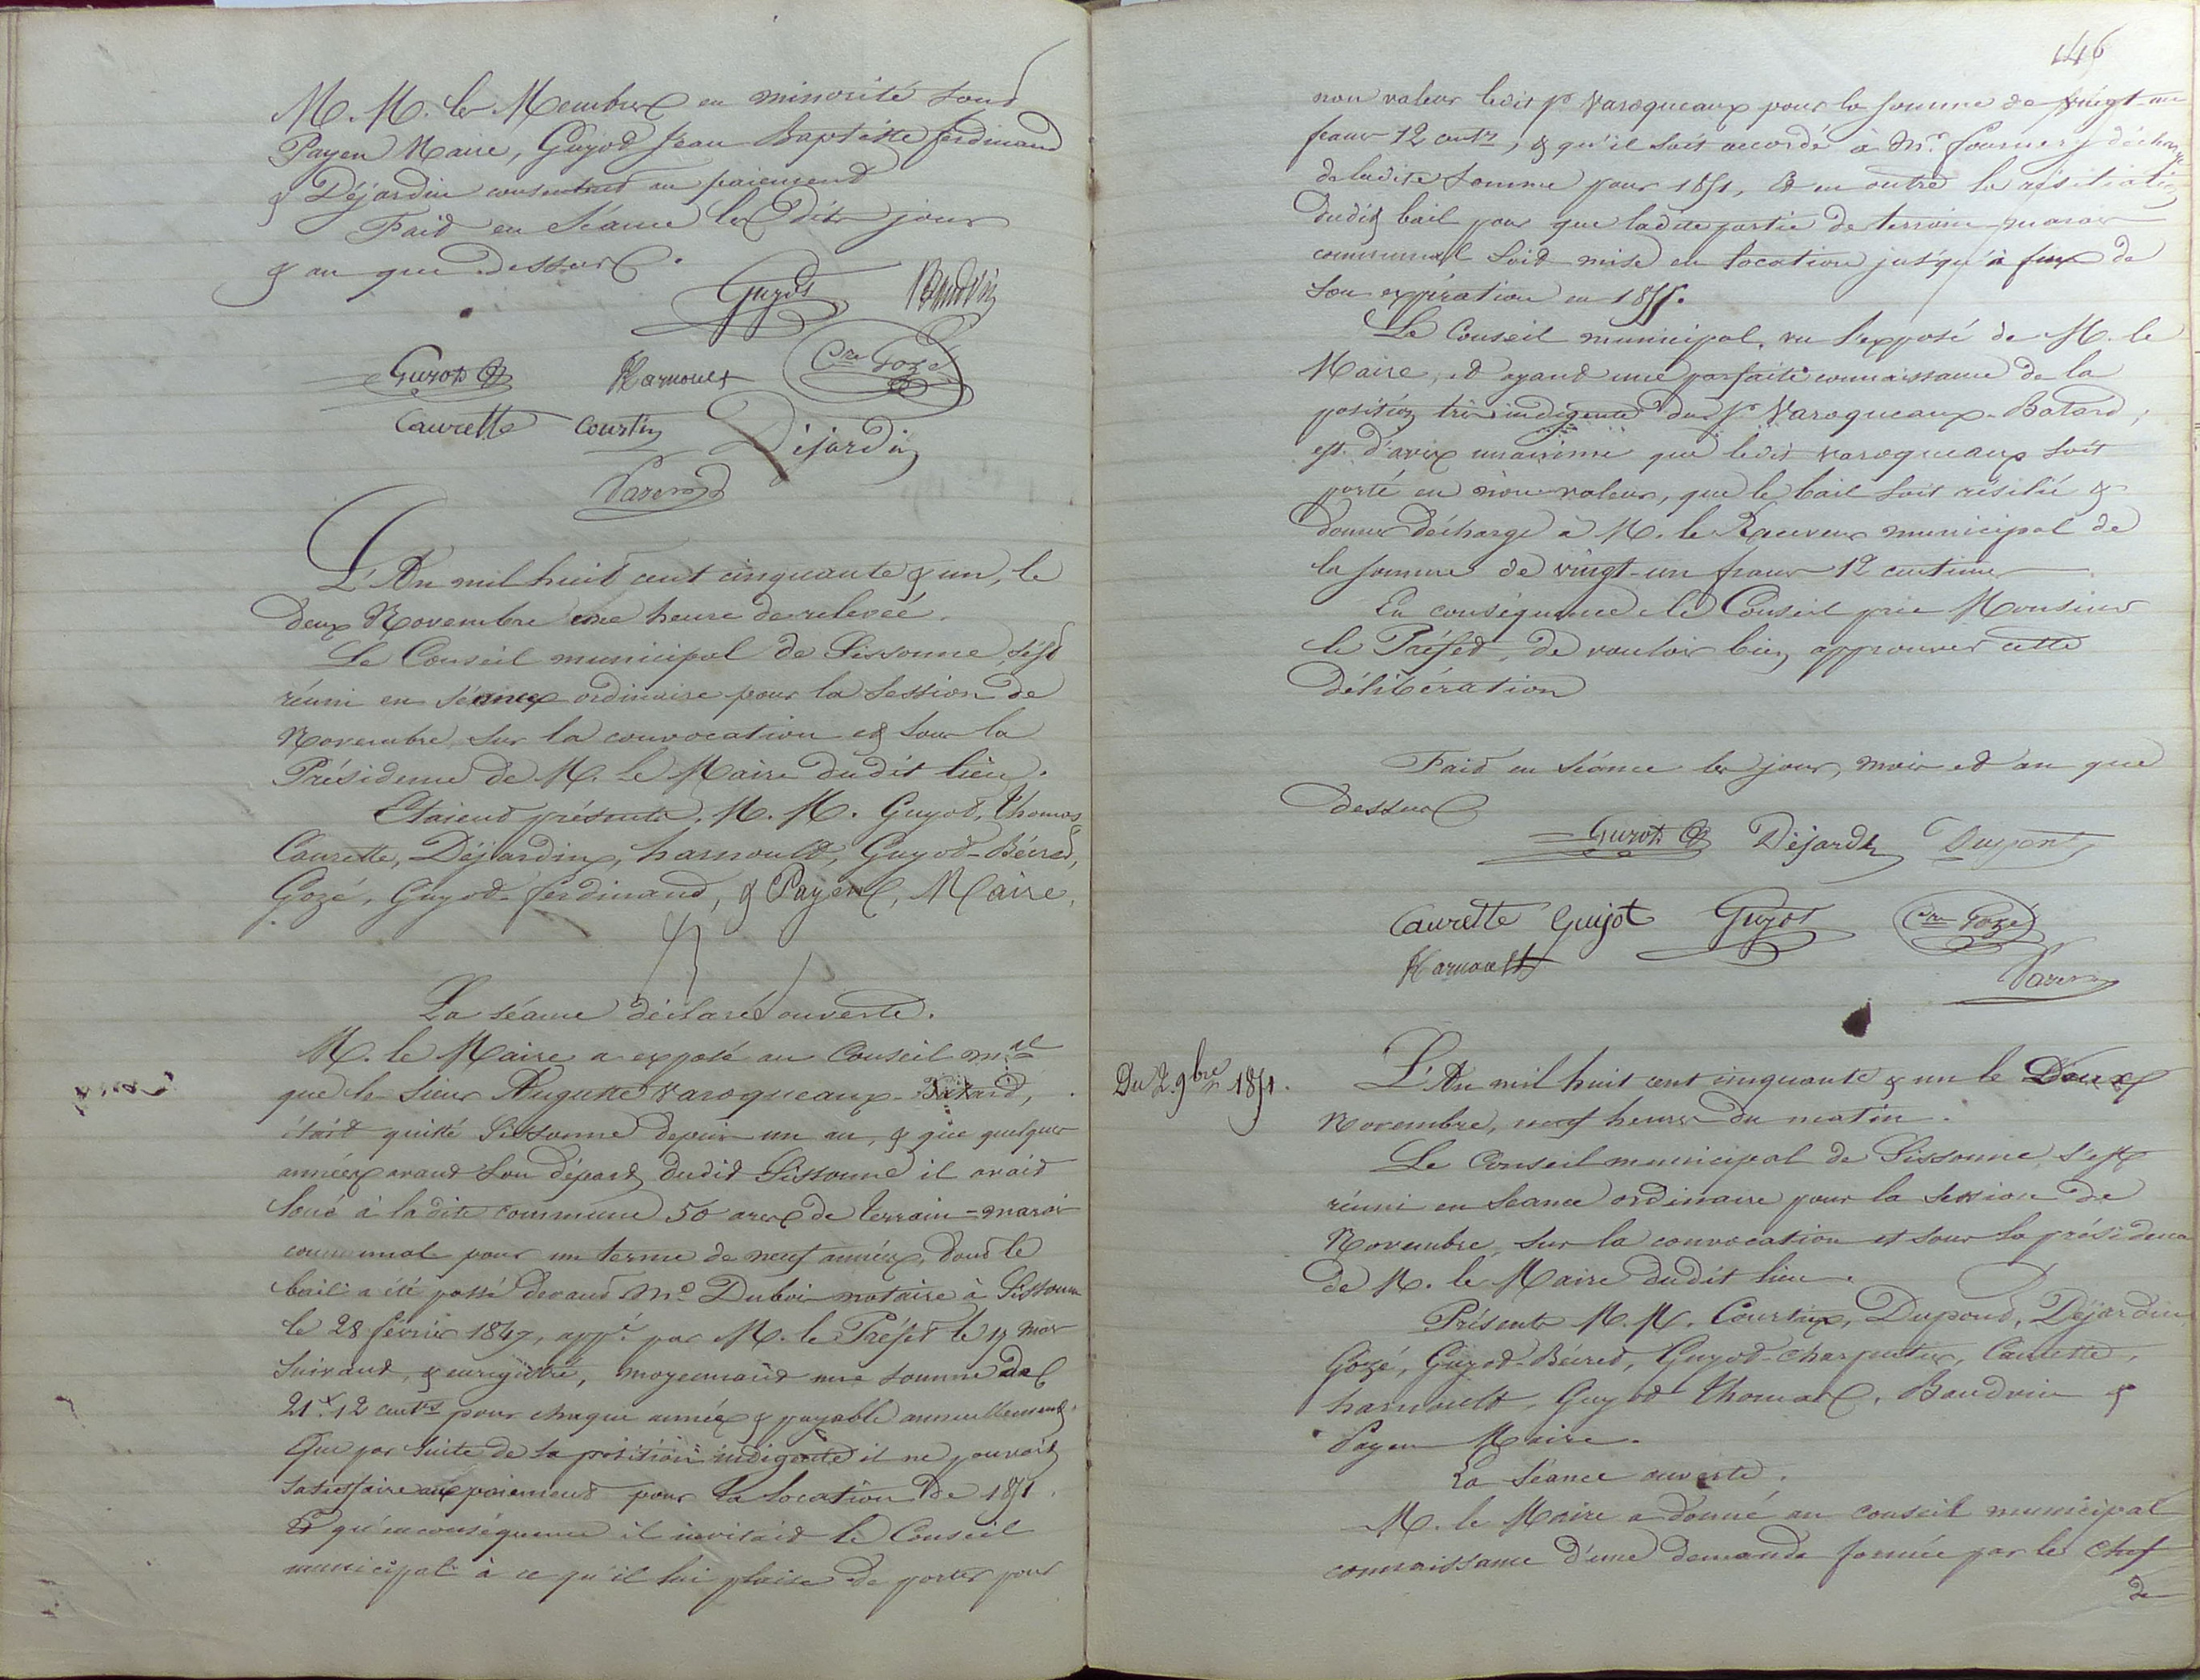 M. M. les Membres en minorité sont
Payen Maire, Guyot Jean Baptiste ferdinand
& Déjardin consentent au paiement
Fait en Séance les dits jour
& an que dessus.
Guyot Baudoin
Guyot Harnoult Cre Gozé
Caurette Courtin Déjardin
Payen
L'An mil huit cent cinquante & un, le
deux Novembre une heure de relevée.
Le Conseil municipal de Sissonne, s'est
réuni en séance ordinaire pour la Session de
Novembre, sur la convocation et sous la
Présidence de M. le Maire dudit lieu.
Etaient présents, M. M. Guyot, Thomas
Caurette, Déjardin, harnoult, Guyot-Béired,
Gozé, Guyot-ferdinand, & Payen, Maire,
La séance déclaré ouverte.
M. le Maire a exposé au Conseil mal
que le Sieur Auguste Varoqueaux-
était quitté Sissonne depuis un an, & que quelques
années avant son départ dudit Sissonne il avait
loué à la dite commune 50 ares de terrain-marais
communal pour un terme de neuf années, dont le
bail a été passé devant Me Dubois notaire à Sissonne
le 28 février 1847, appé par M. le Préfet le 17 mars
suivant, & enregistré, moyennant une somme de
21f 12 cents pour chaque année & payable annuellement.
Que par suite de sa position indigente il ne pouvait
satisfaire au paiement pour la location de 1851.
Et qu'en conséquence il invitait le Conseil
municipal à ce qu'il lui plaise de porter pour
146
non valeur ledit Sr Varoqueaux pour la somme de vingt-un
francs 12 cents, & qu'il soit accordé à Mr. fournery décharge
de ladite somme pour 1851, Et en outre la résiliation
dudit bail pour que ladite partie de terrain marais
communal soit mise en location jusqu'à fin de
son expiration en 1855.
Le Conseil municipal, vu l'exposé de M. le
Maire, et ayant une parfaite connaissance de la
position très indigente du Sr Varoqueaux-Batard,
est d'avis unanime que ledit Varoqueaux soit
porté en non valeur, que le bail soit résilié &
donner décharge à M. le Receveur municipal de
la somme de vingt-un francs 12 centimes
En conséquence le Conseil prie Monsieur
le Préfet, de vouloir bien approuver cette
délibération
Fait en Séance les jour, mois et an que
dessus
Guyot Déjardin Dupont
Caurette Guijot Guyot Cre Gozé
Harnoult Payen
Du 2 9bre 1851.
L'An mil huit cent cinquante & un le Deux
Novembre, neuf heures du matin.
Le Conseil municipal de Sissonne s'est
réuni en Seance ordinaire pour la Session de
Novembre, sur la convocation et sous la présidence
de M. le Maire dudit lieu.
Présents M. M. Courtin, Dupont, Déjardin
Gozé, Guyot-Béired, Guyot-Charpentier, Caurette,
harnoult, Guyot Thomas, Baudoin &
Payen Maire.
La Séance ouverte.
M. le Maire a donné au conseil municipal
connaissance d'une demande formée par le Chef
de